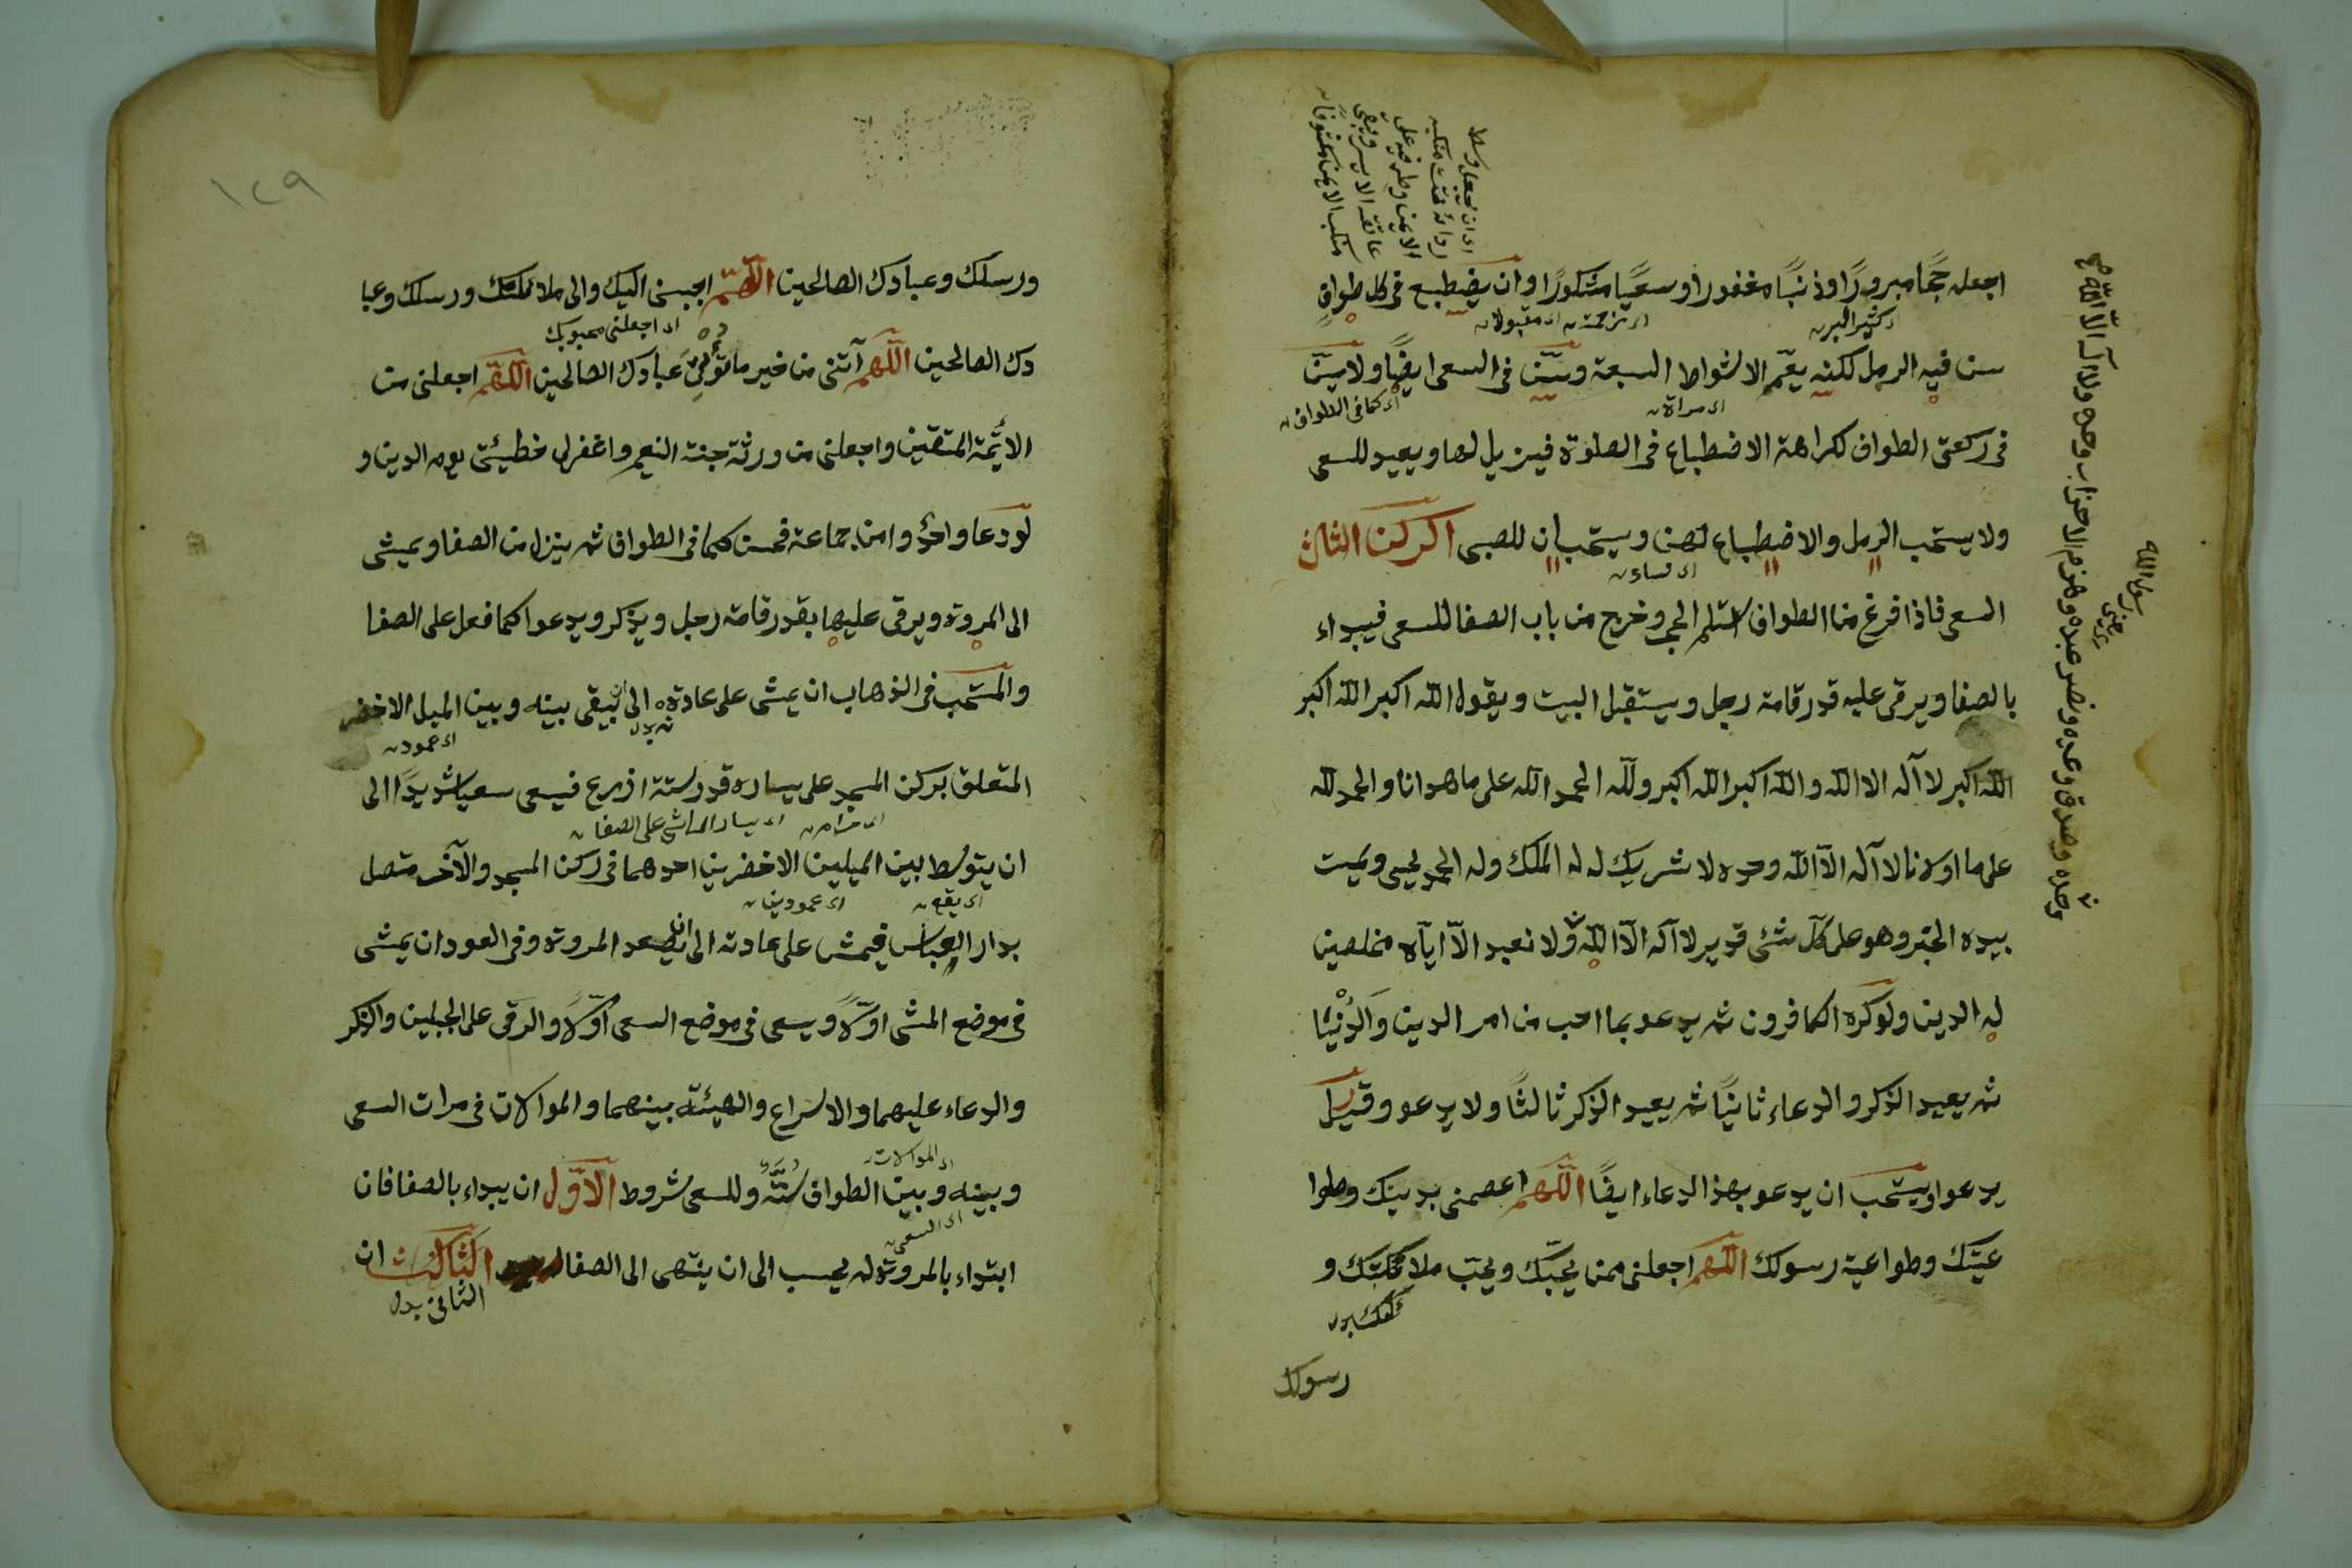 اجعله حجًا مبرورًا وذنبًا مغفورا وسعيًا مشكورًا وان يضطبع فى كل طواف
سن فيه الرمل لكنه يعّم الاشواط السبعة ويسّن فى السعى ايضًا ولا يسّن
فى ركعتى الطواف لكراهة الاضطباع فى الصلوة فيزيل لها ويعيد للسعى
ولا يستحب الرمل والاضطباع لهن ويستحبان للصبى الركن الثالث
السعى فاذا فرغ من الطواف استلم الحجر وخرج من باب الصفا للسعى فيبداء
بالصفا ويرقى عليه قدر قامة رجل ويستقبل البيت ويقول الله اكبر الله اكبر
الله اكبر لا آله الا الله والله اكبر الله اكبر ولله الحمد الله على ما هدانا والحمد لله
على ما اولانا لا آله الّا الله وحده لا شريك له له الملك وله الحمد يحيى ويميت
بيده الخير وهو على كلّ شئ قدير لا آله الّا الله ولا نعبد الّا ايّاه مخلصين
له الدين ولو كره الكافرون ثم يدعو بما احب من امر الدين والدُنْيَا
ثم يعيد الذكر والدعاء ثانيًا ثم يعيد الذكر ثالثًا ولا يدعو وقيل
يدعوا ويستحب ان يدعو بهذا الدعاء ايضًا اللّهم اعصمنى بدينك وطوا
عيتك وطواعية رسولك اللّهم اجعلنى ممن يحبّك ويحبّ ملائكتك و
رسولك
اى ان يجعل وسط
ردائه تحت منكبه
الايمن وطرفيه على
عاتقه الايسر ويبقى
منكب الايمن مكشوفا
اى كثير البر
اى مقبولا
اى مراة
اى كما فى الطواف
اى نساء
وحده وصدق وعده ونصر عبده وهزم الاحزاب وحده ولا آله الّا الله صح
رسول الله
١٢٩
ورسلك وعبادك الصالحين اللّهمّ احببنى اليك والى ملائكتك ورسلك وعبا
دك الصالحين اللّهم آتنى من خير ما تؤتى عبادك الصالحين اللّهم اجعلنى من
الائمة المتقين واجعلنى من ورثة جنة النعيم واغفر لى خطيئتى يوم الدين و
لو دعا واحد وامن جماعة فحسن كما فى الطواف ثم ينزل من الصفا ويمشى
الى المروة ويرقى عليها بقدر قامة رجل ويذكر ويدعوا كما فعل على الصفا
والمستحب فى الذهاب ان يمشى على عادته الى ان يبقى بينه وبين الميل الاخضر
المتعلق بركن المسجد على يساره قدر ستة اذرع فيسعى سعيا شديدًا الى
ان يتوسط بين الميلين الاخضرين احدهما فى ركن المسجد والآخر متصل
بدار العباس فيمش على عادته الى ان يصعد المروة وفى العود ان يمشى
فى موضع المشى اوّلًا ويسعى فى موضع السعى اوّلًا والرقى على الجبلين والذكر
والدعاء عليهما والاسراع والهيئة بينهما والموالات فى مرات السعى
وبينه وبين الطواف سنّة وللسعى شروط الاوّل ان يبداء بالصفا فان
ابتداء بالمروة لم يحسب الى ان ينتهى الى الصفا الثالث ان
اى اجعلنى محبوبك
اى عمود
اى يسار الماشى على الصفا
اى يقع
اى عمودين
اى الموالات
اى السعى
الثانى بدل